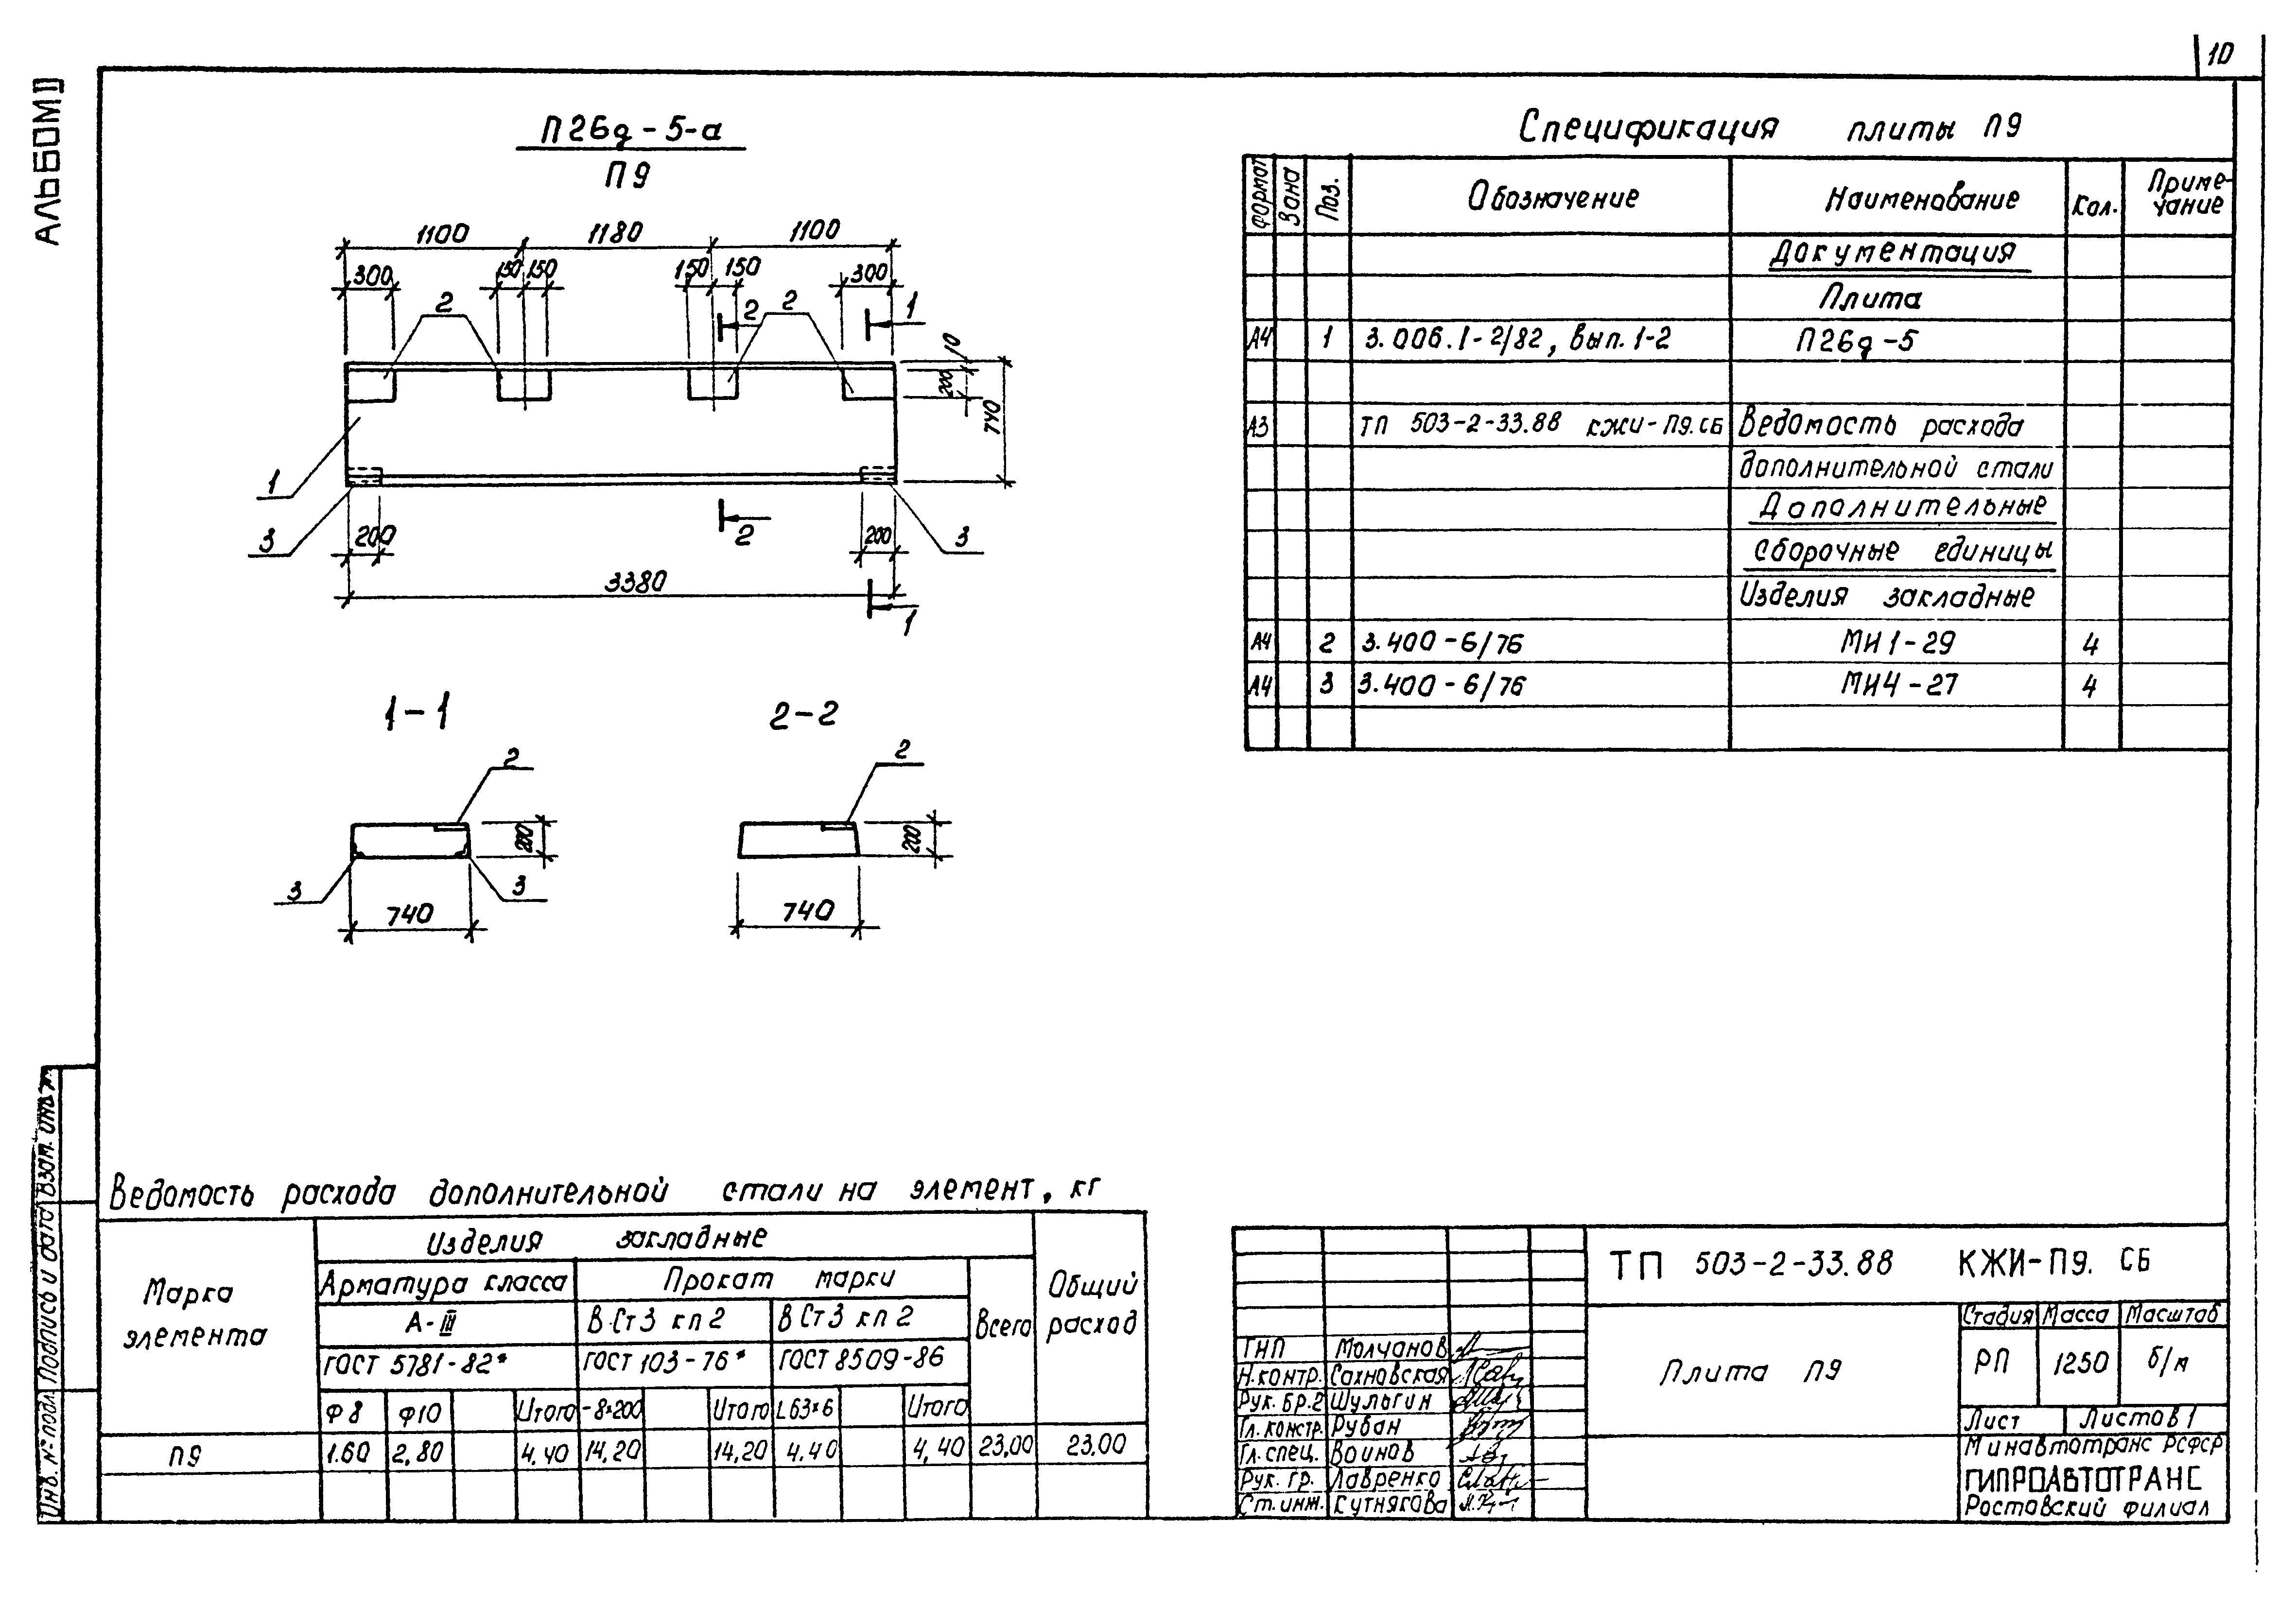 10
АЛЬБОМ II
П26д-5-а
П9
1100 1180 1100
300 150 150 150 150 300
2 2 2 1
10
200
740
1
3 200 2 200 3
3380
1
1-1
2
200
3 3
740
2-2
2
200
740
Спецификация плиты П9
Формат Зона Поз. Обозначение Наименование Кол. Приме-
чание
Документация
Плита
А4 1 3.006.1-2/82, вып. 1-2 П26д-5
А3 ТП 503-2-33.88 КЖИ-П9.СБ Ведомость расхода
дополнительной стали
Дополнительные
сборочные единицы
Изделия закладные
А4 2 3.400-6/76 МИ1-29 4
А4 3 3.400-6/76 МИ4-27 4
Ведомость расхода дополнительной стали на элемент, кг
Марка
элемента
Изделия закладные
Общий
расход
Арматура класса Прокат марки Всего
А-III ВСт3 кп2 ВСт3 кп2
ГОСТ 5781-82* ГОСТ 103-76* ГОСТ 8509-86
Ф8 Ф10 Итого -8×200 Итого L63×6 Итого
П9 1.60 2.80 4.40 14.20 14.20 4.40 4.40 23.00 23.00
ТП 503-2-33.88 КЖИ-П9. СБ
Плита П9
Стадия Масса Масштаб
РП 1250 б/м
Лист Листов 1
Минавтотранс РСФСР
ГИПРОАВТОТРАНС
Ростовский филиал
ГИП Молчанов
Н.контр. Сахновская
Рук. бр.2 Шульгин
Гл. констр. Рубан
Гл. спец. Воинов
Рук. гр. Лавренко
Ст. инж. Кутнякова
Инв. № подл. Подпись и дата Взам. инв. №